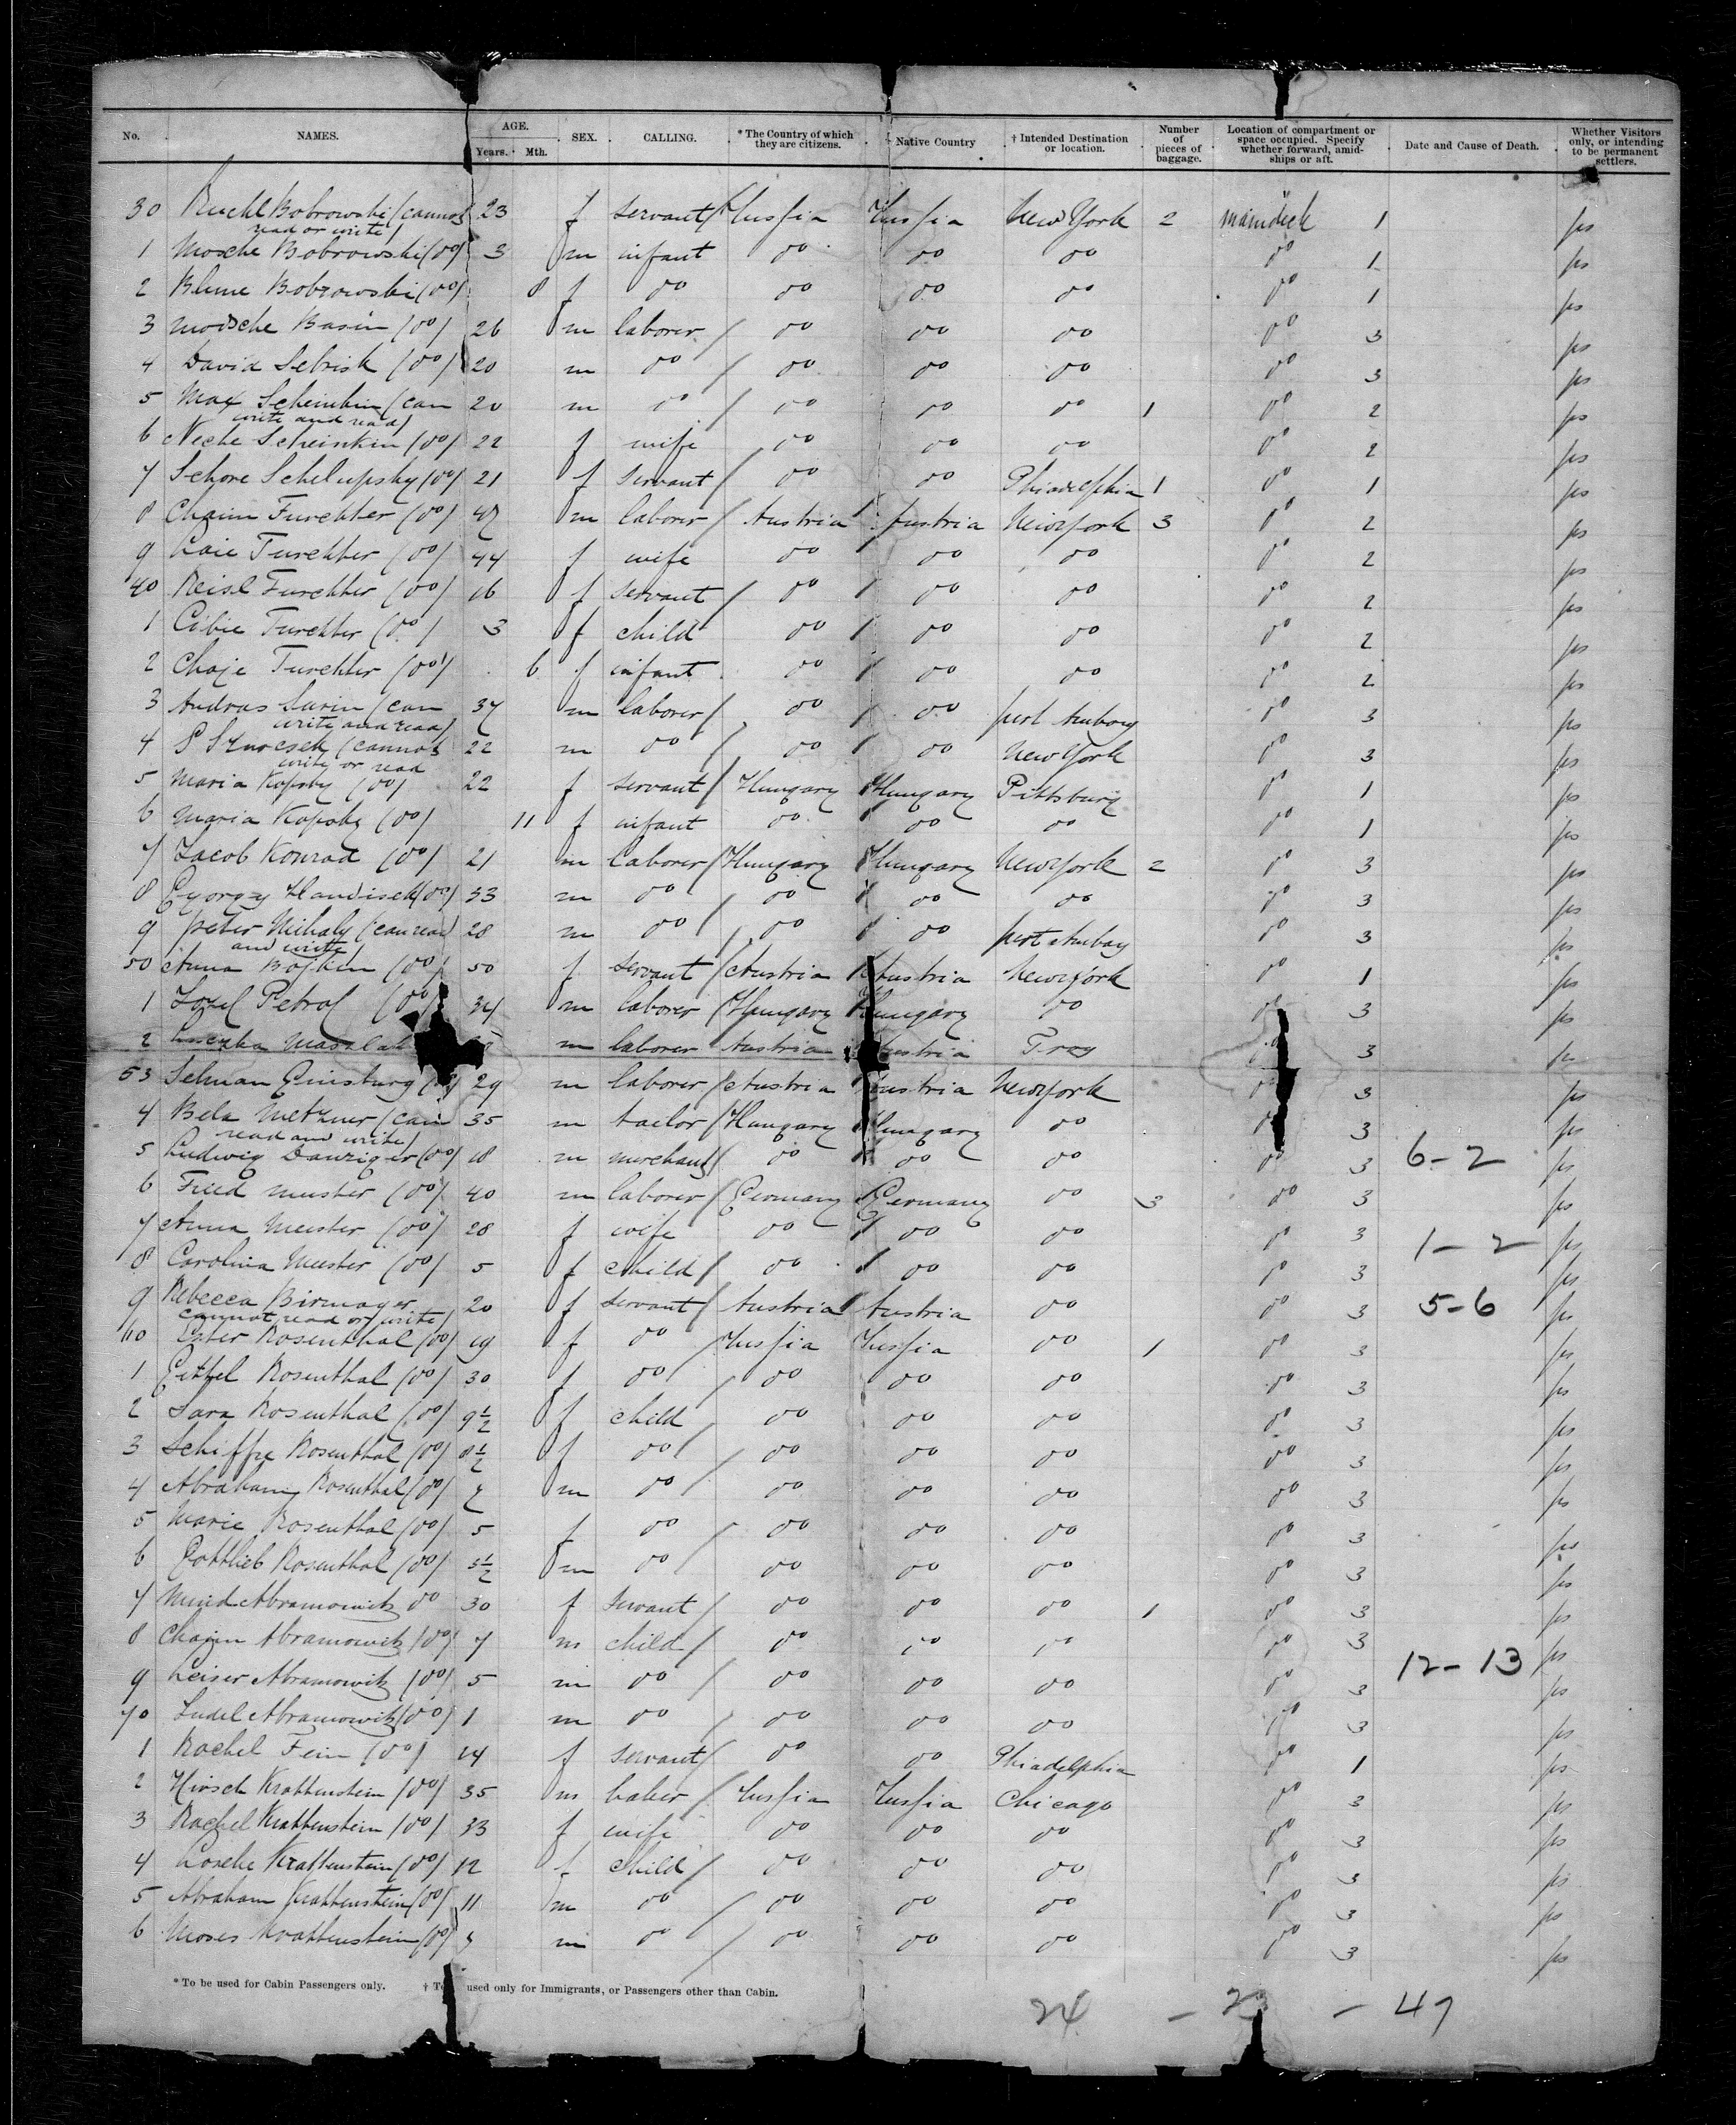 No. NAMES. AGE. Years. Mth. SEX. CALLING. * The Country of which they are citizens. Native Country † Intended Destination or location. Number of pieces of baggage. Location of compartment or space occupied. Specify whether forward, amidships or aft. Date and Cause of Death. Whether Visitors only, or intending to be permanent settlers.
30 Ruchl Bobrowski (cannot 23 f servant / Russia Russia New York 2 maindeck 1
read or write)
1 Mosche Bobrowski (do) 3 m infant do do do do 1
2 Blume Bobrowski (do) 8 f do do do do do 1
3 Modsche Basin (do) 26 m laborer / do do do do 3
4 David Sebrisk (do) 20 m do / do do do do 3
5 Max Scheinkin (can 20 m do / do do do 1 do 2
write and read)
6 Neche Scheinkin (do) 22 f wife do do do do 2
7 Schore Schelupsky (do) 21 f servant / do do Phiadelphia 1 do 1
8 Chaim Furchter (do) m laborer / Austria Austria New York 3 do 2
9 Laie Furchter (do) 44 f wife do do do do 2
40 Reisl Furchter (do) 16 f servant / do do do do 2
1 Cibie Furchter (do) 3 f child do do do do 2
2 Chaje Furchter (do) 6 f infant do do do do 2
3 Andras Surin (can 37 m laborer / do do port Amboy do 3
write and read)
4 (cannot 22 m do / do do New York do 3
write or read
5 Maria Kopsky (do) 22 f servant / Hungary Hungary Pittsburg do 1
6 Maria Kopsky (do) 11 f infant do do do do 1
7 Jacob Konrad (do) 21 m laborer / Hungary Hungary New York 2 do 3
8 Gyorgy Handisek (do) 33 m do / do do do do 3
9 peter Mihaly (can read 28 m do / do do port Amboy do 3
and write)
50 Anna Bojkin (do) 50 f servant / Austria Austria New York do 1
1 Petrol (do) 34 m laborer / Hungary Hungary do do 3
2 m laborer Austria Austria Troy do 3
53 Selman Ginsburg (do) 29 m laborer / Austria Austria New York do 3
4 Bela Metzner (can 35 m tailor / Hungary Hungary do do 3
read and write)
5 Ludwig Danziger (do) 18 m merchant / do do do do 3 6-2
6 Fried Meister (do) 40 m laborer / Germany Germany do 3 do 3
7 Anna Meister (do) 28 f wife do do do do 3 1-2
8 Carolina Meister (do) 5 f child / do do do do 3
9 Rebecca Birmayer 20 f servant / Austria Austria do do 3 5-6
cannot read or write)
60 Ester Rosenthal (do) 19 f do / Russia Russia do 1 do 3
1 Gittel Rosenthal (do) 30 f do / do do do do 3
2 Sara Rosenthal (do) 9½ f child do do do do 3
3 Schiffre Rosenthal (do) 8½ f do / do do do do 3
4 Abraham Rosenthal (do) 7 m do / do do do do 3
5 Marie Rosenthal (do) 5 f do / do do do do 3
6 Gottlieb Rosenthal (do) 3½ m do do do do do 3
7 Abramowitz do 30 f servant / do do do 1 do 3
8 Chajim Abramowitz (do) 7 m child / do do do do 3
9 Leiser Abramowitz (do) 5 m do / do do do do 3 12-13
70 Judel Abramowitz (do) 1 m do / do do do do 3
1 Rachel Fein (do) 14 f servant / do do Phiadelphia do 1
2 Hirsch Krattenstein (do) 35 m baker / Russia Russia Chicago do 3
3 Rachel Krattenstein (do) 33 f wife do do do do 3
4 Losche Krattenstein (do) 12 f child / do do do do 3
5 Abraham Krattenstein (do) 11 m do / do do do do 3
6 Moses Krattenstein (do) m do / do do do do 3
* To be used for Cabin Passengers only. † To used only for Immigrants, or Passengers other than Cabin.
24 - 23 - 47